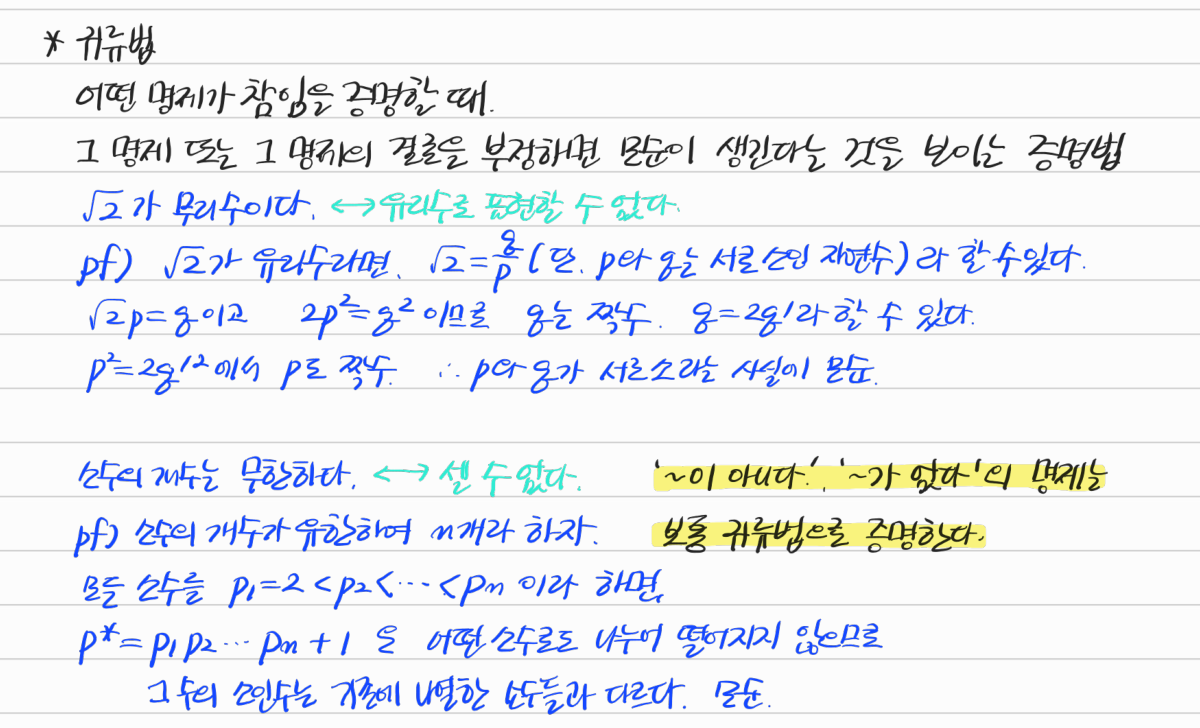 * 귀류법
어떤 명제가 참임을 증명할 때.
그 명제 또는 그 명제의 결론을 부정하면 모순이 생긴다는 것을 보이는 증명법
√2가 무리수이다. ↔ 유리수로 표현할 수 없다.
pf) √2가 유리수라면, √2 = q/p (단, p와 q는 서로소인 자연수)라 할 수 있다.
√2p = q이고 2p² = q² 이므로 q는 짝수. q = 2q'라 할 수 있다.
p² = 2q'²에서 p도 짝수. ∴ p와 q가 서로소라는 사실에 모순.
소수의 개수는 무한하다. ↔ 셀 수 없다. '~이 아니다.', '~가 없다'의 명제는
pf) 소수의 개수가 유한하여 n개라 하자. 보통 귀류법으로 증명한다.
모든 소수를 p₁ = 2 < p₂ < ⋯ < pₙ 이라 하면,
p* = p₁p₂⋯pₙ + 1 은 어떤 소수로도 나누어 떨어지지 않으므로
그 수의 소인수는 기존에 나열한 소수들과 다르다. 모순.